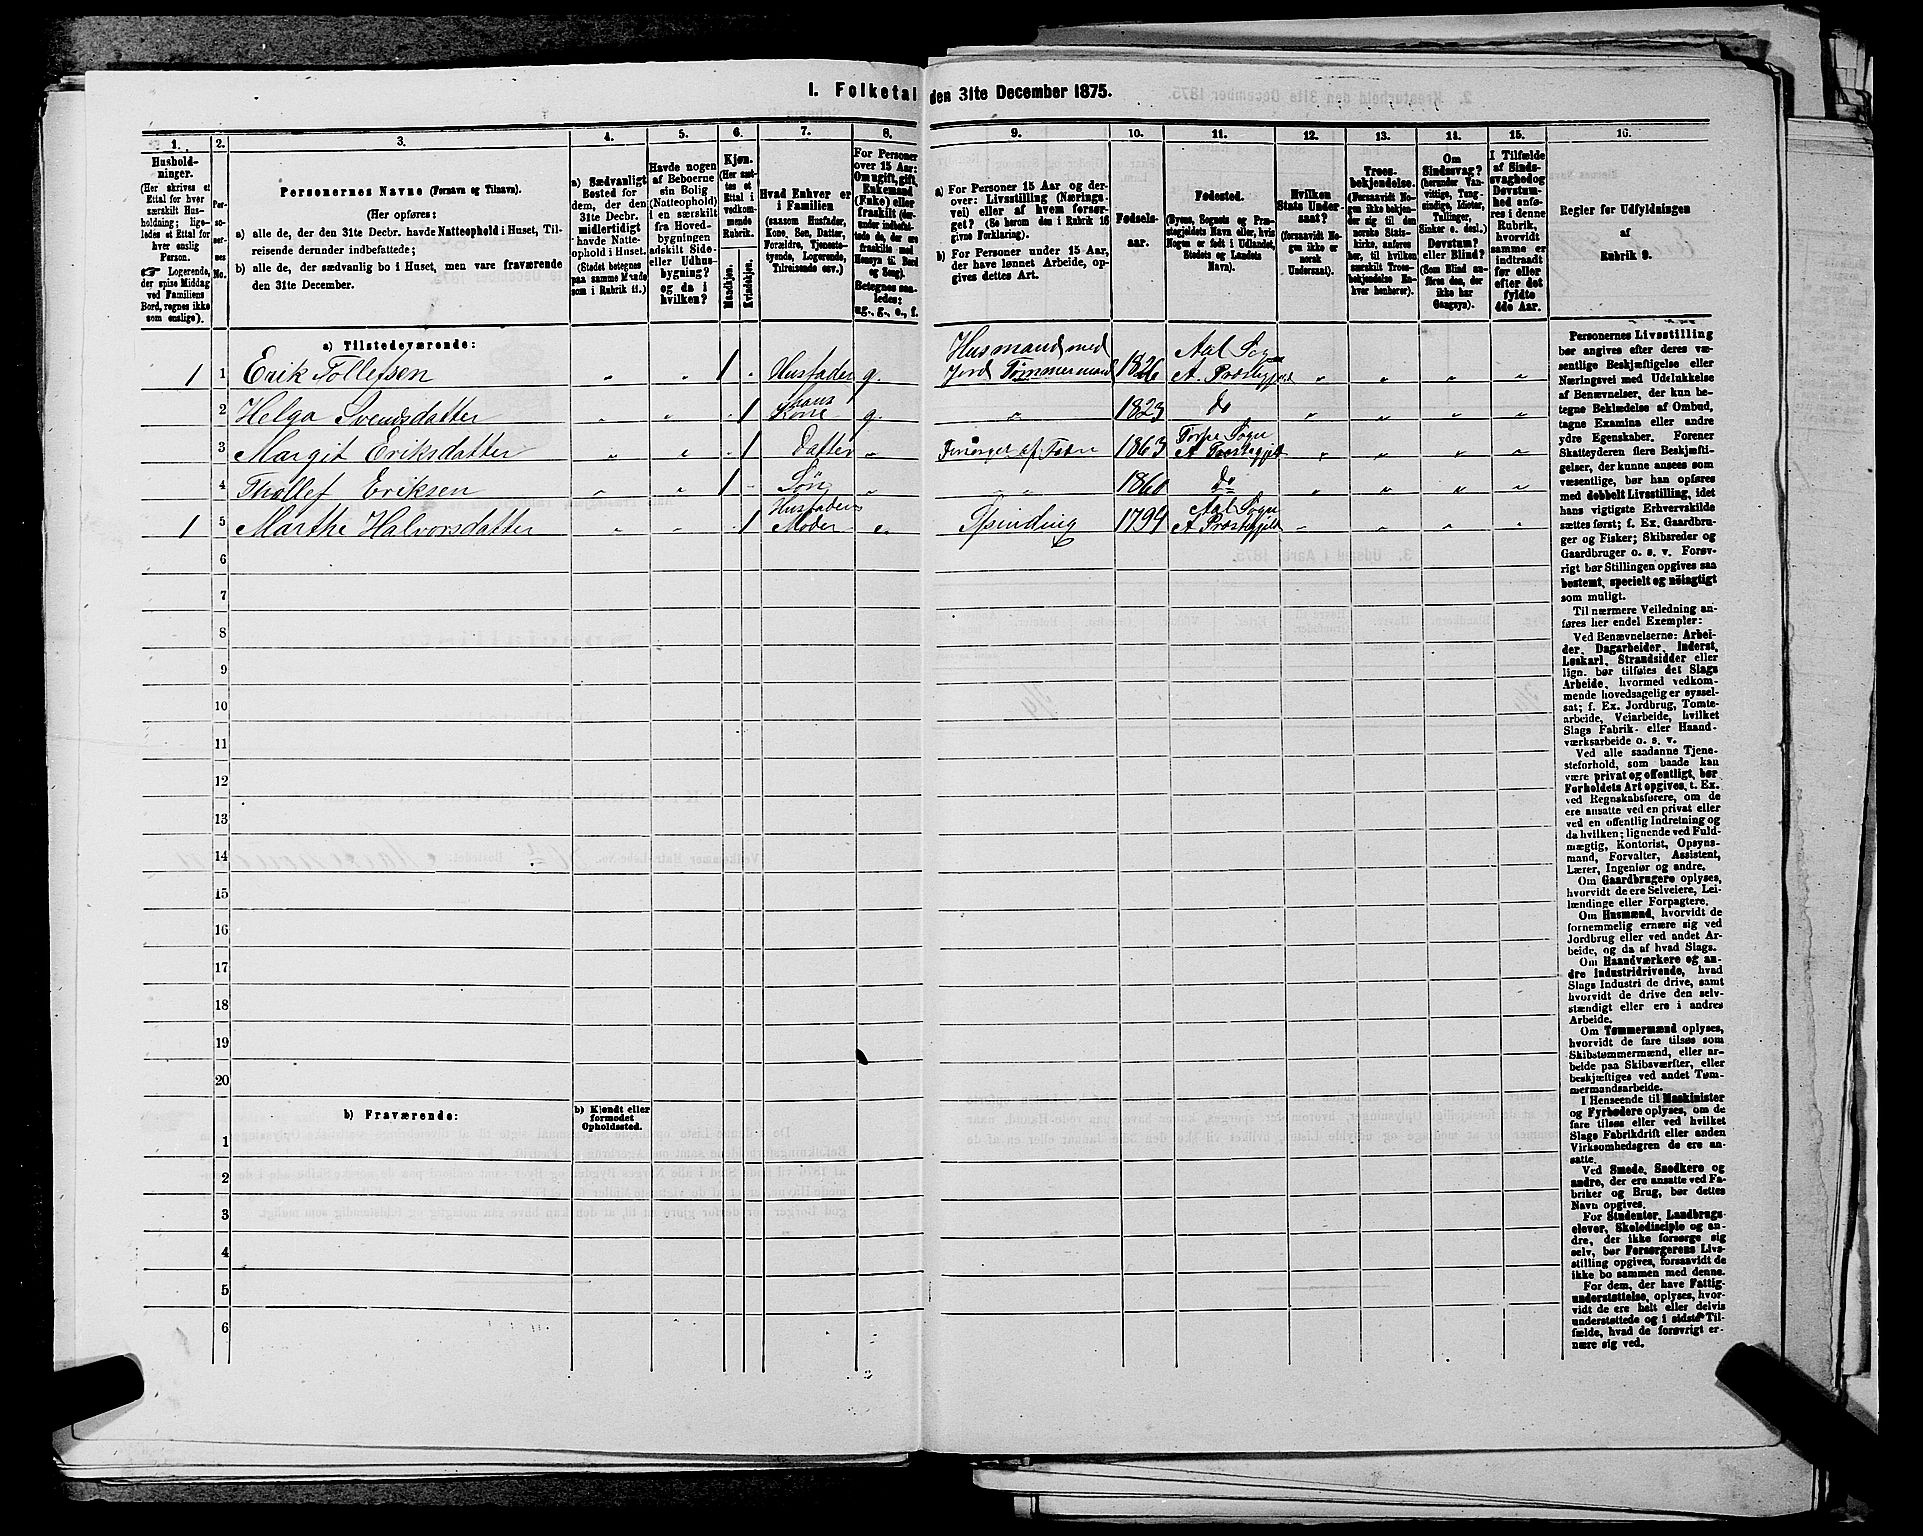 I. Folketal den 31te December 1875.
1.
Hushold-
ninger.
(Her skrives et
Ettal for hver
særskilt Hus-
holdning; lige-
ledes et Ettal for
hver enslig
Person.
☞ Logerende,
der spise Middag
ved Familiens
Bord, regnes ikke
som enslige).
2.
Per-
so-
ner-
nes
No.
3.
Personernes Navne (Fornavn og Tilnavn).
(Her opføres:
a) alle de, der den 31te Decbr. havde Natteophold i Huset, Til-
reisende derunder indbefattede;
b) alle de, der sædvanlig bo i Huset, men vare fraværende
den 31te December.
4.
a) Sædvanligt
Bosted for
dem, der den
31te Decbr.
midlertidigt
havde Natte-
ophold i Huset.
(Stedet betegnes
paa samme Maade
som i Rubrik 11.)
5.
Havde nogen
af Beboerne
sin Bolig
(Natteophold)
i en særskilt
fra Hoved-
bygningen
adskilt Side-
eller Udhus-
bygning?
og da i
hvilken?
6.
Kjøn.
(Her sæt-
tes et
Ettal i
vedkom-
mende
Rubrik.
Mandkjøn.
Kvindekjøn.
7.
Hvad Enhver er
i Familien
(saasom Husfader,
Kone, Søn, Datter,
Forældre, Tjeneste-
tyende, Logerende,
Tilreisende osv.)
8.
For Personer
over 15 Aar:
Om ugift, gift,
Enkemand
(Enke) eller
fraskilt (der-
under indbefat-
tede de, der ere
fraskilte med
Hensyn til Bord
og Seng).
Betegnes saa-
ledes:
ug., g., e., f.
9.
a) For Personer 15 Aar og der-
over: Livsstilling (Nærings-
vei) eller af hvem forsør-
get? (Se herom den i Rubrik 16
givne Forklaring).
b) For Personer under 15 Aar,
der have lønnet Arbeide, op-
gives dettes Art.
10.
Fødsels-
aar.
11.
Fødested.
(Byens, Sognets og Præ-
stegjeldets Navn eller, hvis
Nogen er født i Udlandet,
Stedets og Landets
Navn).
12.
Hvilken
Stats Under-
saat?
(forsaavidt No-
gen ikke er
norsk
Undersaat).
13.
Troes-
bekjendelse.
(Forsaavidt No-
gen ikke bekjen-
der sig til den
norske Stats-
kirke, anføres
her, til hvilken
særskilt Troes-
bekjendelse En-
hver henhører).
14.
Om
Sindssvag?
(herunder Van-
vittige, Tung-
sindige, Idioter,
Tullinger,
Sinker o. desl.)
Døvstum?
eller Blind?
(Som Blind an-
føres den, der
ikke har
Gangsyn).
15.
I Tilfælde
af Sinds-
svaghed og
Døvstum-
hed anfø-
res i denne
Rubrik,
hvorvidt
samme er
indtraadt
før eller
efter det
fyldte
4de Aar.
16.
Regler for Udfyldningen
af
Rubrik 9.
a) Tilstedeværende:
1 1 Erik Tollefsen „ „ 1 . Husfader g. Husmand med
Jord Tømmermand 1826 Aal Sogn
A. Præstegjeld „ „ „ „
2 Helga Svendsdatter „ „ . 1 hans
Kone g. „ 1823 do „ „ „ „
3 Margit Eriksdatter „ „ . 1 Datter „ Forsørget af Fader 1863 Torpe Sogn
A Præstegjeld „ „ „ „
4 Thollef Eriksen „ „ 1 . Søn „ „ „ 1860 do „ „ „ „
1 5 Marthe Halvorsdatter „ „ . 1 Husfaders
Moder e. Spinding 1794 Aal Sogn
A Præstegjeld „ „ „ „
6
7
8
9
10
11
12
13
14
15
16
17
18
19
20
b) Fraværende:
b) Kjendt eller
formodet
Opholdssted.
1
2
3
4
5
6
Personernes Livsstilling
bør angives efter deres væ-
sentlige Beskjæftigelse eller
Næringsvei med Udelukkelse
af Benævnelser, der kun be-
tegne Beklædelse af Ombud,
tagne Examina eller andre
ydre Egenskaber. Forener
Skatteyderen flere Beskjæfti-
gelser, der kunne ansees som
væsentlige, bør han opføres
med dobbelt Livsstilling, idet
hans vigtigste Erhvervskilde
sættes først; f. Ex. Gaardbru-
ger og Fisker; Skibsreder og
Gaardbruger o. s. v. Forøv-
rigt bør Stillingen opgives saa
bestemt, specielt og nöiagtigt
som muligt.
Til nærmere Veiledning an-
føres her endel Exempler:
Ved Benævnelserne: Arbei-
der, Dagarbeider, Inderst,
Løskarl, Strandsidder eller
lign. bør tilføies det Slags
Arbeide, hvormed vedkom-
mende hovedsagelig er syssel-
sat; f. Ex. Jordbrug, Tomte-
arbeide, Veiarbeide, hvilket
Slags Fabrik- eller Haand-
værksarbeide o. s. v.
Ved alle saadanne Tjene-
steforhold, som baade kan
være privat og offentligt, bør
Forholdets Art opgives, t. Ex.
ved Regnskabsførere, om de
ere ansatte ved en privat eller
ved en offentlig Indretning og
da hvilken; lignende ved Fuld-
mægtig, Kontorist, Opsyns-
mand, Forvalter, Assistent,
Lærer, Ingeniør og andre.
Om Gaardbrugere oplyses,
hvorvidt de ere Selveiere, Lei-
lændinge eller Forpagtere.
Om Husmænd, hvorvidt de
fornemmelig ernære sig ved
Jordbrug eller ved andet Ar-
beide, og da af hvad Slags.
Om Haandværkere og an-
dre industridrivende, hvad
Slags Industri de drive, samt
hvorvidt de drive den selv-
stændigt eller ere i andres
Arbeide.
Om Tømmermænd oplyses,
hvorvidt de fare tilsøs som
Skibstømmermænd, eller ar-
beide paa Skibsværfter, eller
beskjæftiges ved andet Tøm-
mermandsarbeide.
I Henseende til Maskinister
og Fyrbødere oplyses, om de
fare tilsøs eller ved hvilket
Slags Fabrikdrift eller anden
Virksomhedsgren de ere an-
satte.
Ved Smede, Snedkere og
andre, der ere ansatte ved Fa-
briker og Brug, bør dettes
Navn opgives.
For Studenter, Landbrugs-
elever, Skoledisciple og an-
dre, der ikke forsørge sig
selv, bør Forsørgerens Livs-
stilling opgives, forsaavidt de
ikke bo sammen med denne.
For dem, der have Fattig-
understøttelse, oplyses, hvor-
vidt de ere helt eller delvis
understøttede og i sidste Til-
fælde, hvad de forøvrigt er-
nære sig ved.